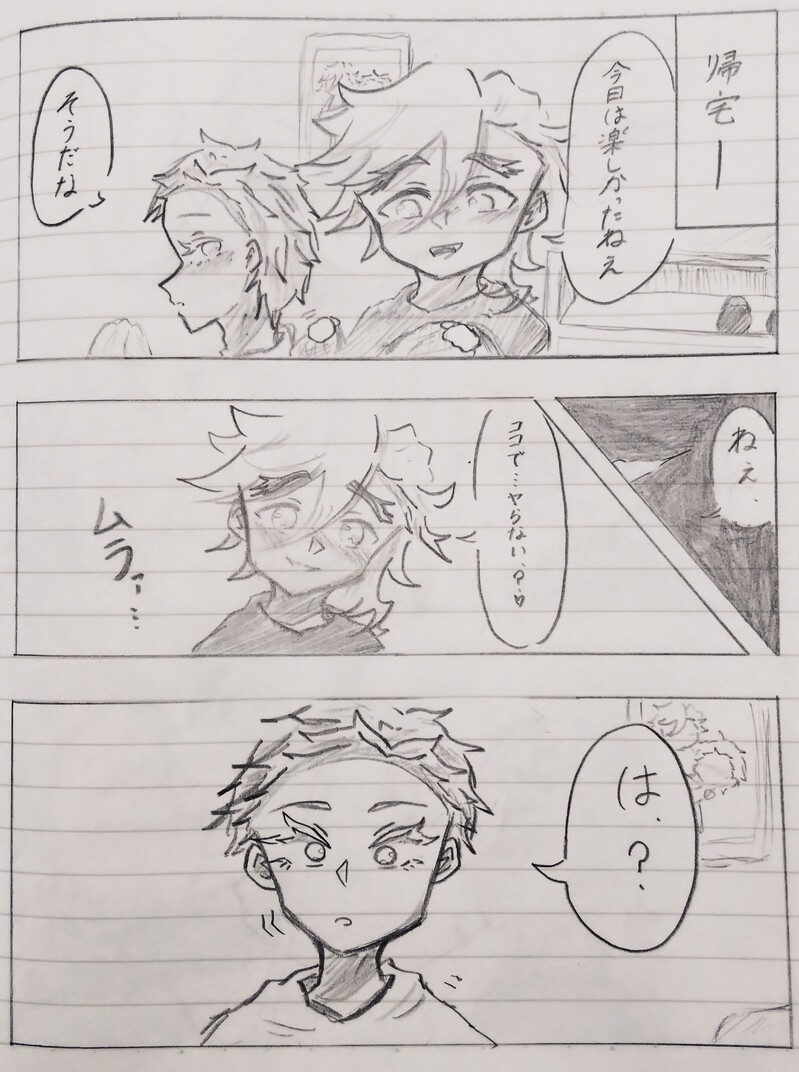 帰宅ー
今日は楽しかったねぇ
そうだな
ねぇ、
ココで…ヤらない、?♡
ムラァ…
は、?